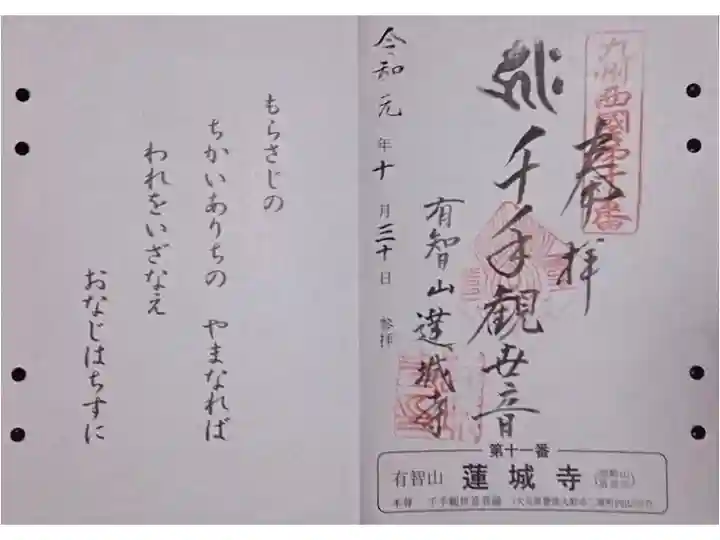 九州西國第十一番
奉拝
千手觀世音
有智山蓮城寺
令和元年十月三十日 参拝
第十一番
有智山 蓮城寺
本尊 千手観世音菩薩
もらさじの
ちかいありちの やまなれば
われをいざなえ
おなじはちすに